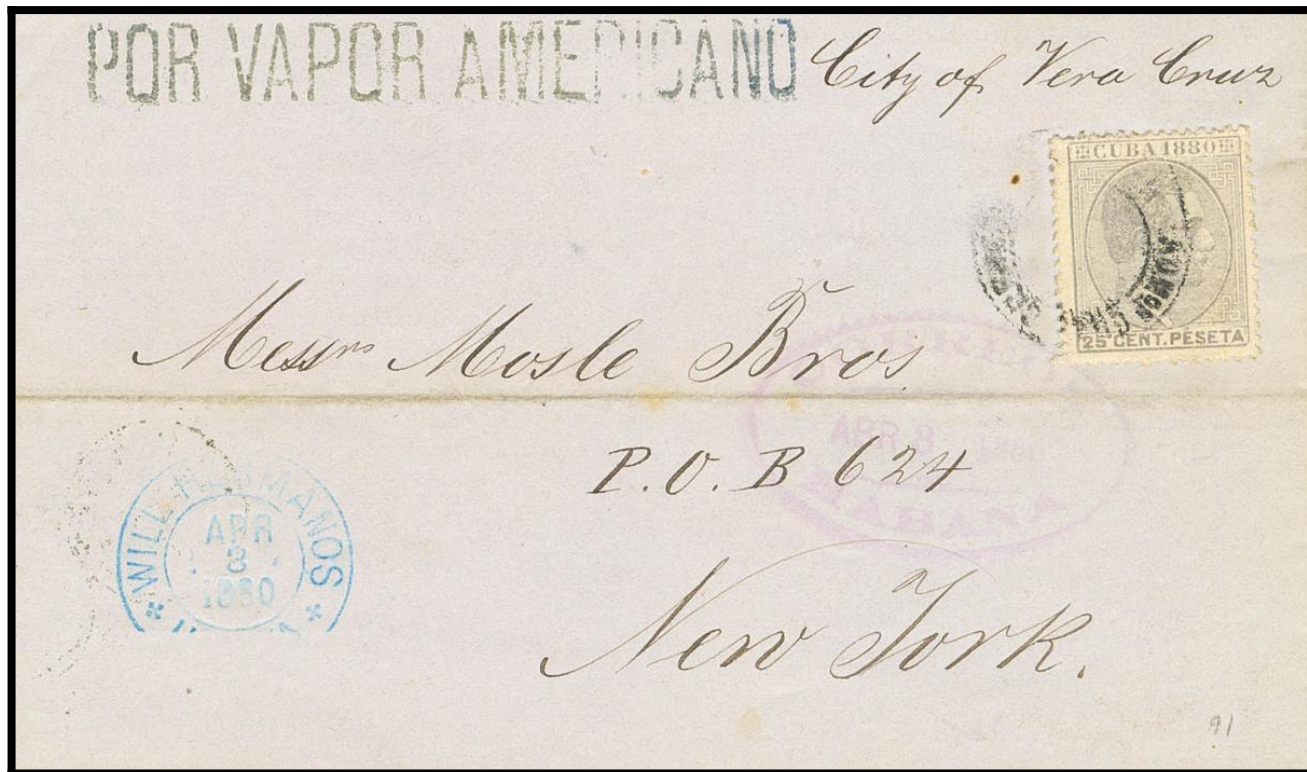 POR VAPOR AMERICANO City of Vera Cruz
CUBA 1880
25 CENT. PESETA
Messrs Mosle Bros
P.O. B 624
New York.
CORREOS
APR 3 1880
HABANA
WILL HERMANOS
APR
3
1880
91